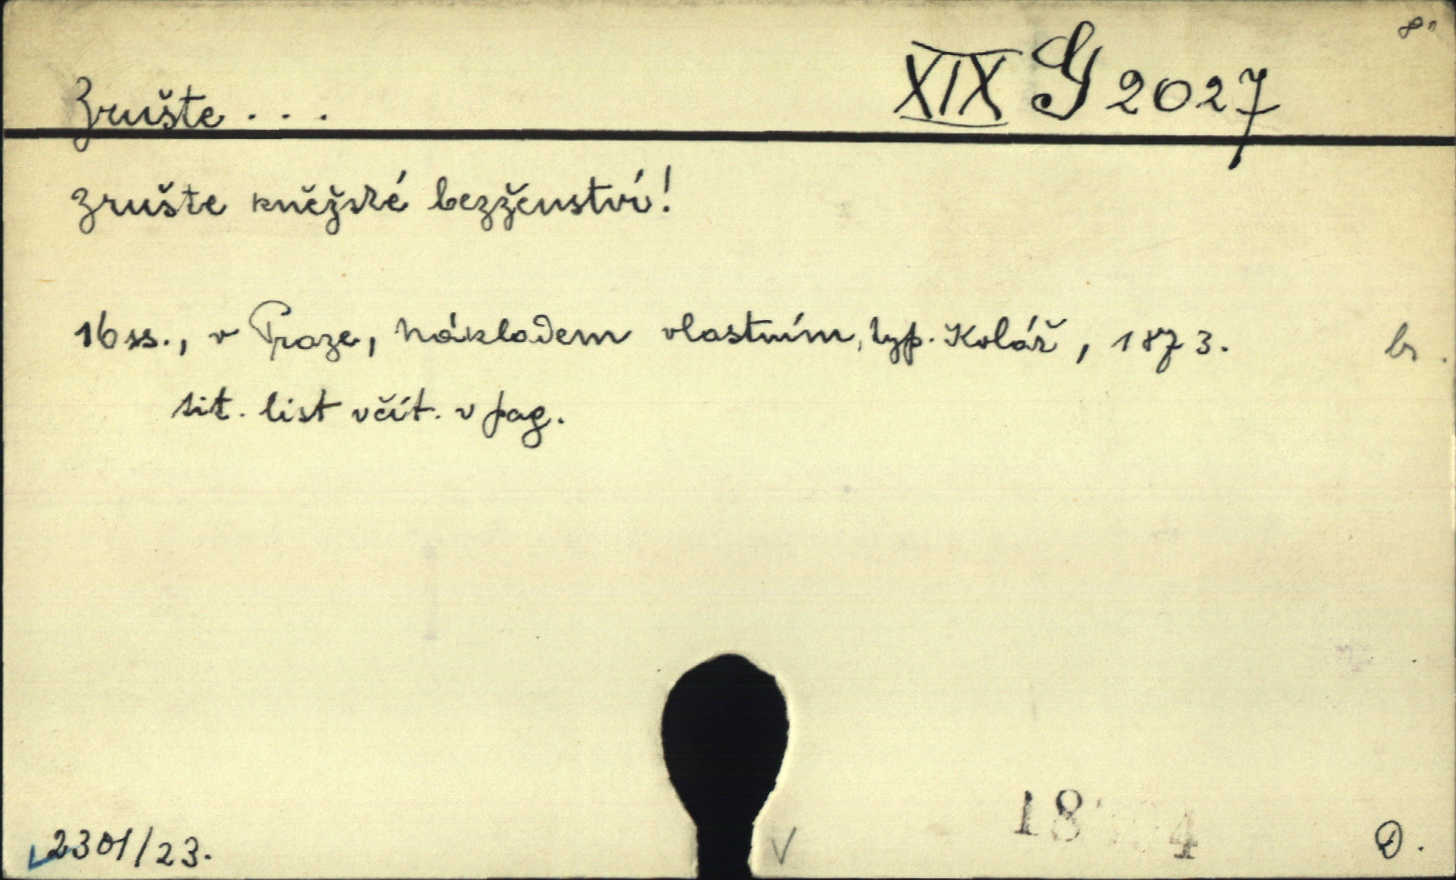 8°
Zrušte . . .
XIX G 2027
zrušte kněžské bezženství!
16 ss., v Praze, nákladem vlastním, typ. Kolář, 1873.
br.
tit. list včít. v pag.
2301/23.
D.